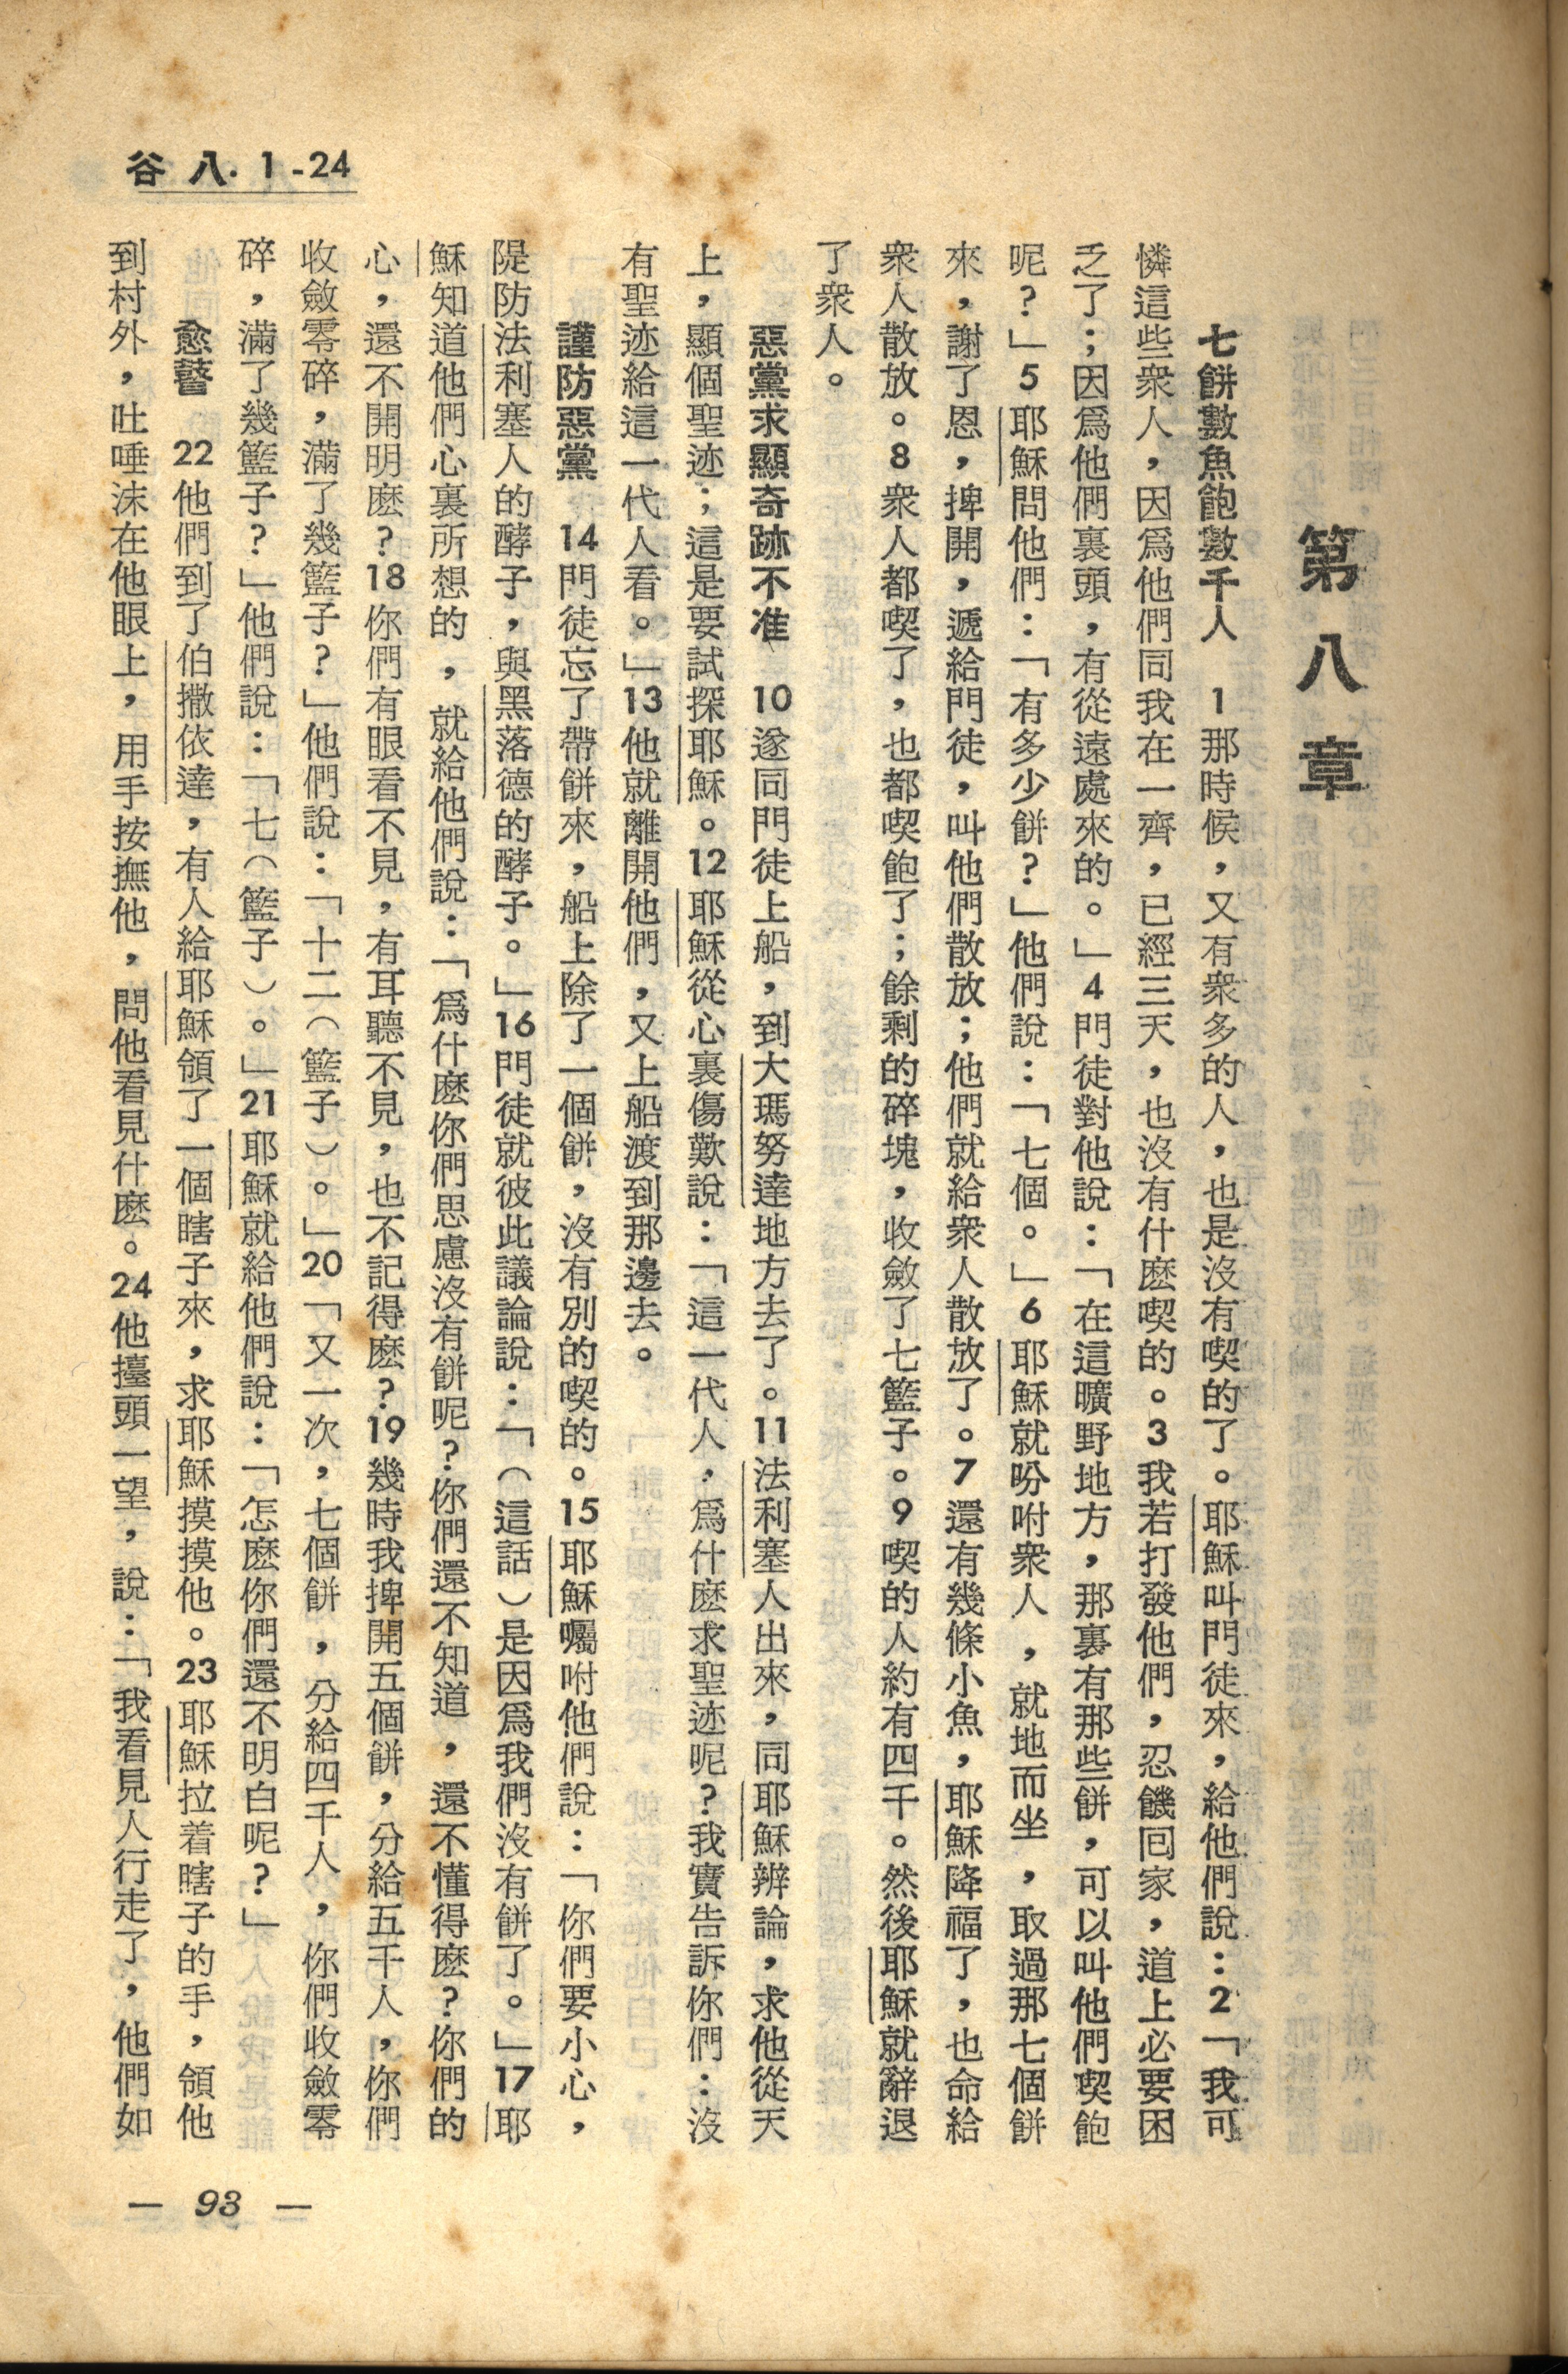 谷 八. 1 - 24
第八章
七餅數魚飽數千人　1那時候，又有衆多的人，也是沒有喫的了。耶穌叫門徒來，給他們說：2「我可
憐這些衆人，因爲他們同我在一齊，已經三天，也沒有什麽喫的。3我若打發他們，忍饑囘家，道上必要困
乏了；因爲他們裏頭，有從遠處來的。」4門徒對他說：「在這曠野地方，那裏有那些餅，可以叫他們喫飽
呢？」5耶穌問他們：「有多少餅？」他們說：「七個。」6耶穌就吩咐衆人，就地而坐，取過那七個餅
來，謝了恩，捭開，遞給門徒，叫他們散放；他們就給衆人散放了。7還有幾條小魚，耶穌降福了，也命給
衆人散放。8衆人都喫了，也都喫飽了；餘剩的碎塊，收斂了七籃子。9喫的人約有四千。然後耶穌就辭退
了衆人。
惡黨求顯奇跡不准　10遂同門徒上船，到大瑪努達地方去了。11法利塞人出來，同耶穌辨論，求他從天
上，顯個聖迹；這是要試探耶穌。12耶穌從心裏傷歎說：「這一代人，爲什麽求聖迹呢？我實告訴你們：沒
有聖迹給這一代人看。」13他就離開他們，又上船渡到那邊去。
謹防惡黨　14門徒忘了帶餅來，船上除了一個餅，沒有別的喫的。15耶穌囑咐他們說：「你們要小心，
隄防法利塞人的酵子，與黑落德的酵子。」16門徒就彼此議論說：「（這話）是因爲我們沒有餅了。」17耶
穌知道他們心裏所想的，就給他們說：「爲什麽你們思慮沒有餅呢？你們還不知道，還不懂得麽？你們的
心，還不開明麽？18你們有眼看不見，有耳聽不見，也不記得麽？19幾時我捭開五個餅，分給五千人，你們
收斂零碎，滿了幾籃子？」他們說：「十二（籃子）。」20「又一次，七個餅，分給四千人，你們收斂零
碎，滿了幾籃子？」他們說：「七（籃子）。」21耶穌就給他們說：「怎麽你們還不明白呢？」
愈瞽　22他們到了伯撒依達，有人給耶穌領了一個瞎子來，求耶穌摸摸他。23耶穌拉着瞎子的手，領他
到村外，吐唾沫在他眼上，用手按撫他，問他看見什麽。24他擡頭一望，說：「我看見人行走了，他們如
— 93 —